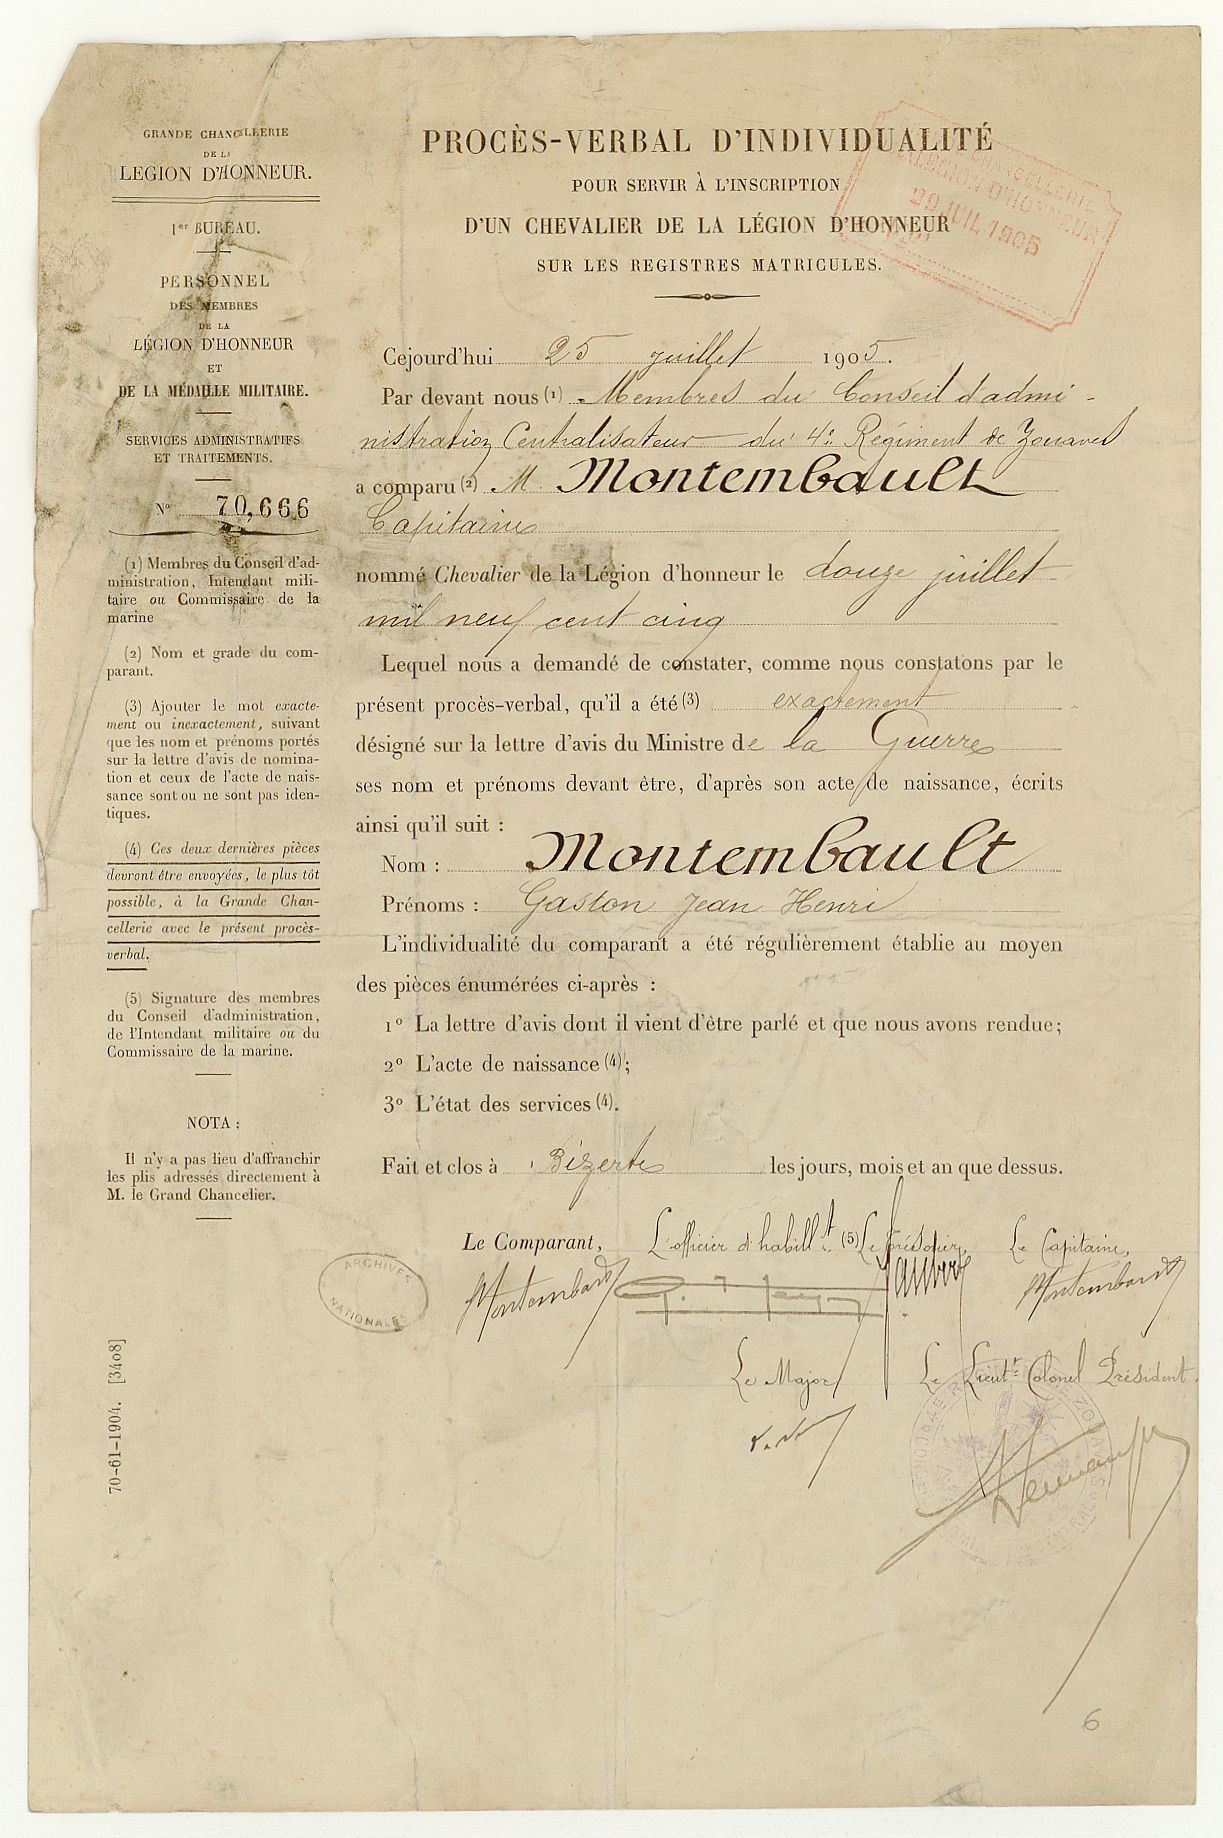 GRANDE CHANCELLERIE
DE LA
LEGION D'HONNEUR.
1er BUREAU.
PERSONNEL
DES MEMBRES
DE LA
LÉGION D'HONNEUR
ET
DE LA MÉDAILLE MILITAIRE.
SERVICES ADMINISTRATIFS
ET TRAITEMENTS.
N° 70,666
(1) Membres du Conseil d'ad-
ministration, Intendant mili-
taire ou Commissaire de la
marine
(2) Nom et grade du com-
parant.
(3) Ajouter le mot exacte-
ment ou inexactement, suivant
que les nom et prénoms portés
sur la lettre d'avis de nomina-
tion et ceux de l'acte de nais-
sance sont ou ne sont pas iden-
tiques.
(4) Ces deux dernières pièces
devront être envoyées, le plus tôt
possible, à la Grande Chan-
cellerie avec le présent procès-
verbal.
(5) Signature des membres
du Conseil d'administration,
de l'Intendant militaire ou du
Commissaire de la marine.
NOTA :
Il n'y a pas lieu d'affranchir
les plis adressés directement à
M. le Grand Chancelier.
70-61-1904. [3408]
PROCÈS-VERBAL D'INDIVIDUALITÉ
POUR SERVIR À L'INSCRIPTION
D'UN CHEVALIER DE LA LÉGION D'HONNEUR
SUR LES REGISTRES MATRICULES.
CHANCELLERIE
LEGION D'HONNEUR
29 JUIL 1905
Cejourd'hui 25 juillet 1905.
Par devant nous (1) Membres du Conseil d'admi-
nistration Centralisateur du 4e Régiment de Zouaves
a comparu (2) M. Montembault
Capitaine
nommé Chevalier de la Légion d'honneur le douze juillet
mil neuf cent cinq
Lequel nous a demandé de constater, comme nous constatons par le
présent procès-verbal, qu'il a été (3) exactement
désigné sur la lettre d'avis du Ministre de la Guerre
ses nom et prénoms devant être, d'après son acte de naissance, écrits
ainsi qu'il suit :
Nom : Montembault
Prénoms : Gaston Jean Henri
L'individualité du comparant a été régulièrement établie au moyen
des pièces énumérées ci-après :
1° La lettre d'avis dont il vient d'être parlé et que nous avons rendue;
2° L'acte de naissance (4);
3° L'état des services (4).
Fait et clos à Bizerte les jours, mois et an que dessus.
Le Comparant, L'officier d'habillt (5) Le Trésorier, Le Capitaine,
Montembault Jaubert Montembault
ARCHIVES
NATIONALES
Le Major Le Lieutt Colonel Président
6